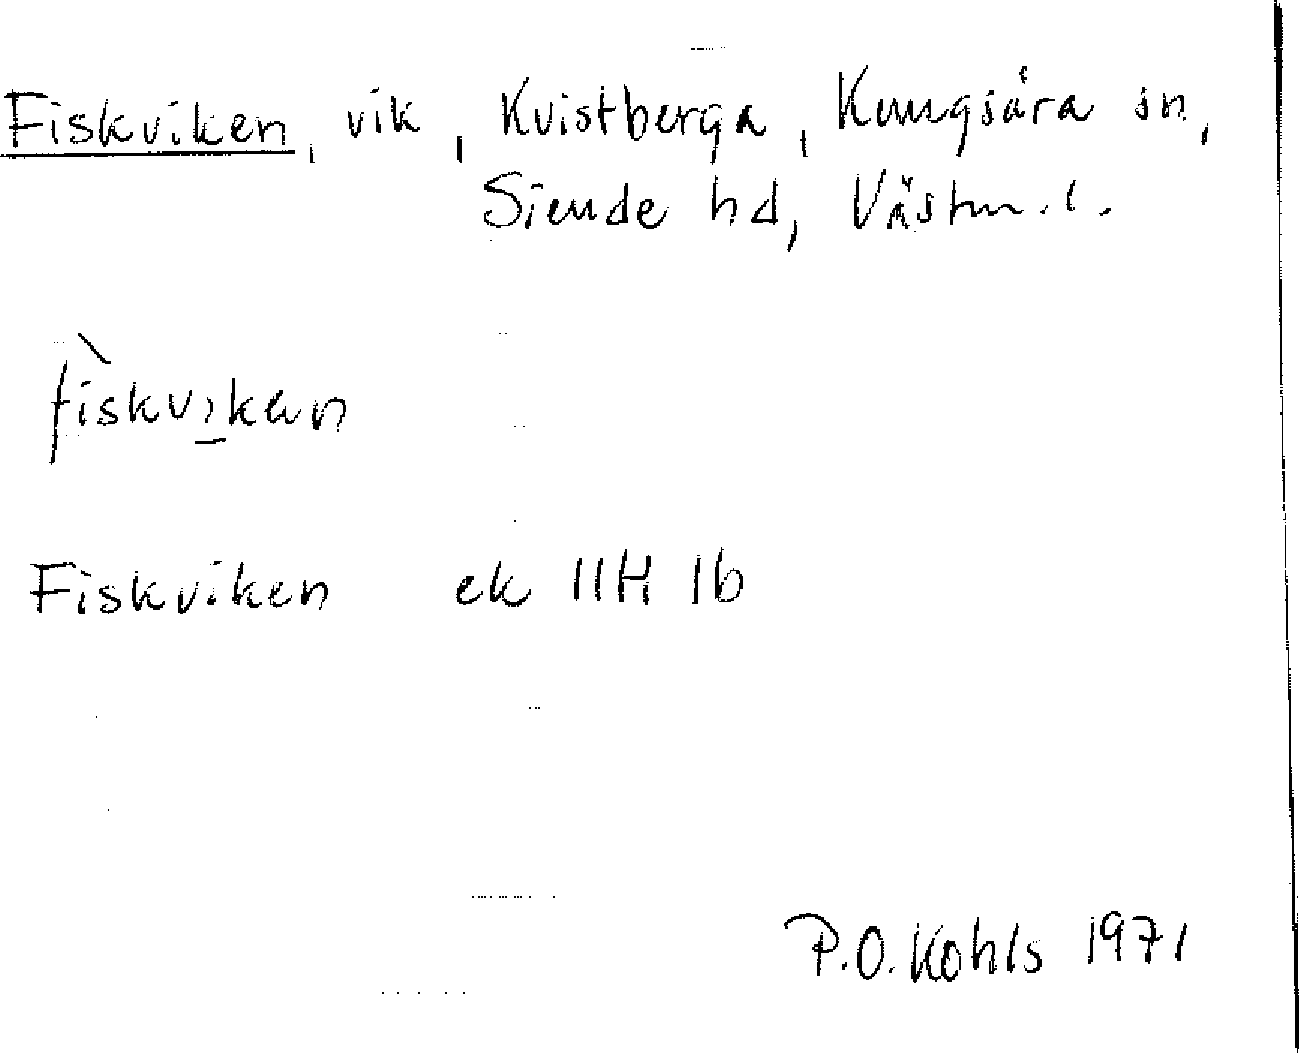 Fiskviken, vik, Kvistberga, Kungsåra sn,
Siende hd, Västm. l.
fìskvi̲kan
Fiskviken ek 11H 1b
P.O. Kohls 1971